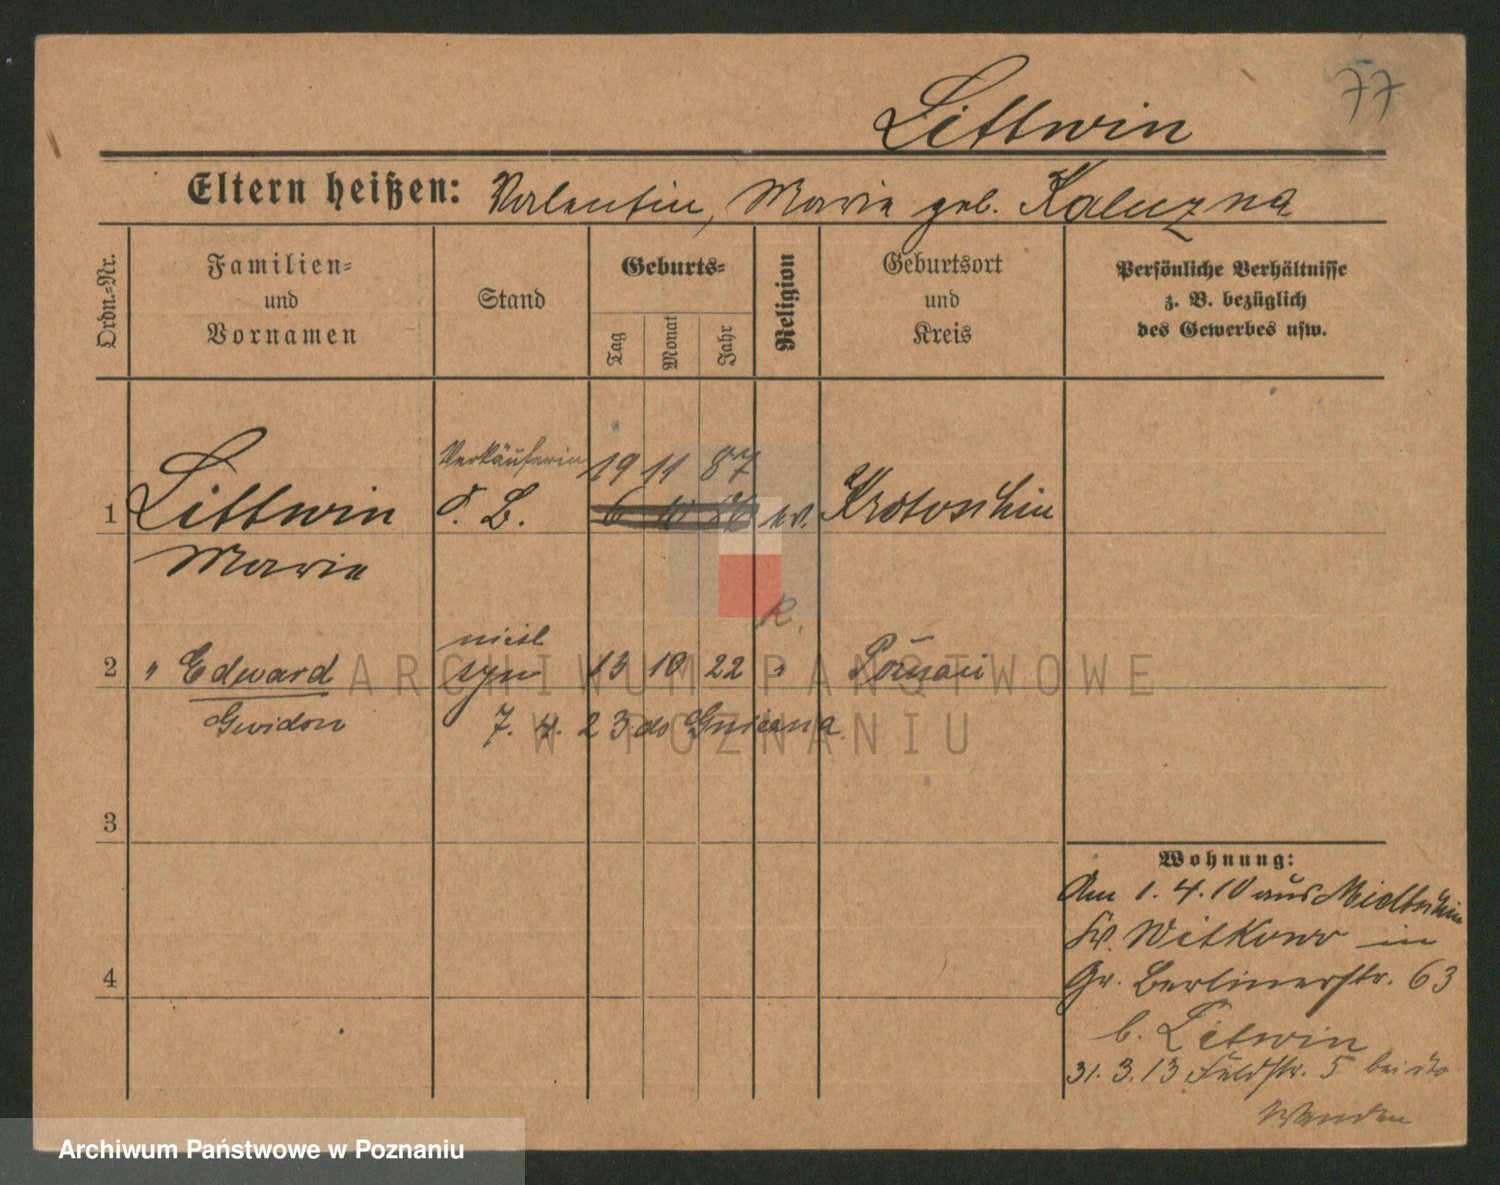 77
Littwin
Eltern heißen: Valentin, Marie geb. Kaluzna
Ordn.-Nr.
Familien-
und
Vornamen
Stand
Geburts-
Tag
Monat
Jahr
Religion
Geburtsort
und
Kreis
Persönliche Verhältnisse
z. B. bezüglich
des Gewerbes usw.
Verkäuferin 19 11 87
1 Littwin o. B. 6 10 86 ev. Krotoschin
Marie
K.
nieśl
2 " Edward syn 13 10 22 " Poznań
Gwidon 7. 4. 23 do Gniezna
3
Wohnung:
Am 1. 4. 10 aus
Witkowo in
4
Gr. Berlinerstr. 63
b. Litwin
31. 3. 13 Feldstr. 5 bei dto
Wenden
ARCHIWUM PAŃSTWOWE
W POZNANIU
Archiwum Państwowe w Poznaniu